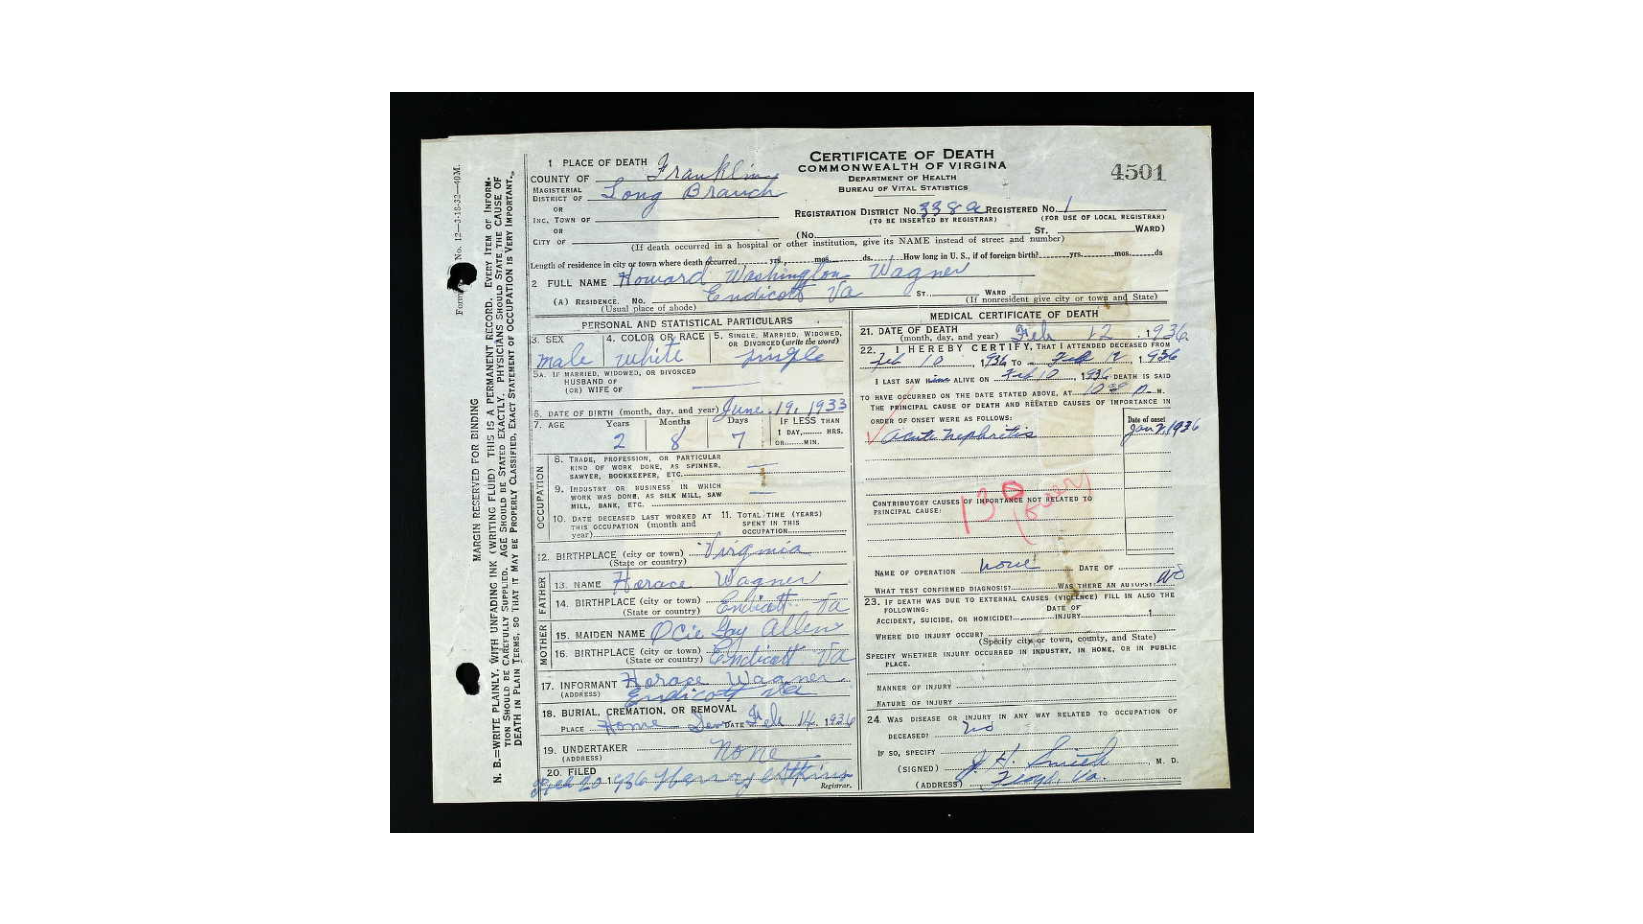 CERTIFICATE OF DEATH
COMMONWEALTH OF VIRGINIA
DEPARTMENT OF HEALTH
BUREAU OF VITAL STATISTICS
4501
1 PLACE OF DEATH
COUNTY OF Franklin
MAGISTERIAL DISTRICT OF Long Branch
OR
INC. TOWN OF
OR
CITY OF
REGISTRATION DISTRICT No. 338a REGISTERED No. 1
(TO BE INSERTED BY REGISTRAR) (FOR USE OF LOCAL REGISTRAR)
(No. ST. WARD)
(If death occurred in a hospital or other institution, give its NAME instead of street and number)
Length of residence in city or town where death occurred yrs. mos. ds. How long in U. S., if of foreign birth? yrs. mos. ds
2 FULL NAME Howard Washington Wagner
(A) RESIDENCE. No. Endicott Va ST. WARD
(Usual place of abode) (If nonresident give city or town and State)
PERSONAL AND STATISTICAL PARTICULARS
3. SEX 4. COLOR OR RACE 5. SINGLE, MARRIED, WIDOWED, OR DIVORCED (write the word)
male white single
5A. IF MARRIED, WIDOWED, OR DIVORCED
HUSBAND OF
(OR) WIFE OF
6. DATE OF BIRTH (month, day, and year) June 19, 1933
7. AGE Years Months Days IF LESS THAN
1 DAY, HRS.
OR MIN.
2 8 7
OCCUPATION
8. TRADE, PROFESSION, OR PARTICULAR
KIND OF WORK DONE, AS SPINNER,
SAWYER, BOOKKEEPER, ETC.
9. INDUSTRY OR BUSINESS IN WHICH
WORK WAS DONE, AS SILK MILL, SAW
MILL, BANK, ETC.
10. DATE DECEASED LAST WORKED AT THIS OCCUPATION (month and year)
11. TOTAL TIME (YEARS) SPENT IN THIS OCCUPATION
12. BIRTHPLACE (city or town) Virginia
(State or country)
FATHER
13. NAME Horace Wagner
14. BIRTHPLACE (city or town) Endicott Va
(State or country)
MOTHER
15. MAIDEN NAME Ocie Gay Allen
16. BIRTHPLACE (city or town) Endicott Va
(State or country)
17. INFORMANT Horace Wagner
(ADDRESS) Endicott Va
18. BURIAL, CREMATION, OR REMOVAL
PLACE Home DATE Feb 14, 1936
19. UNDERTAKER None
(ADDRESS)
20. FILED Feb 20 1936 Henry Atkins
Registrar.
MEDICAL CERTIFICATE OF DEATH
21. DATE OF DEATH
(month, day, and year) Feb 12, 1936
22. I HEREBY CERTIFY, THAT I ATTENDED DECEASED FROM
Feb 10, 1936 TO Feb 12, 1936
I LAST SAW him ALIVE ON Feb 10, 1936 DEATH IS SAID
TO HAVE OCCURRED ON THE DATE STATED ABOVE, AT M.
THE PRINCIPAL CAUSE OF DEATH AND RELATED CAUSES OF IMPORTANCE IN
ORDER OF ONSET WERE AS FOLLOWS:
Date of onset
acute nephritis Jan 2, 1936
CONTRIBUTORY CAUSES OF IMPORTANCE NOT RELATED TO
PRINCIPAL CAUSE:
130
NAME OF OPERATION none DATE OF
WHAT TEST CONFIRMED DIAGNOSIS? WAS THERE AN AUTOPSY? no
23. IF DEATH WAS DUE TO EXTERNAL CAUSES (VIOLENCE) FILL IN ALSO THE
FOLLOWING:
ACCIDENT, SUICIDE, OR HOMICIDE? DATE OF INJURY 1
WHERE DID INJURY OCCUR?
(Specify city or town, county, and State)
SPECIFY WHETHER INJURY OCCURRED IN INDUSTRY, IN HOME, OR IN PUBLIC
PLACE.
MANNER OF INJURY
NATURE OF INJURY
24. WAS DISEASE OR INJURY IN ANY WAY RELATED TO OCCUPATION OF
DECEASED? no
IF SO, SPECIFY
(SIGNED) J. H. Smith, M. D.
(ADDRESS) Floyd, Va.
MARGIN RESERVED FOR BINDING
N. B.—WRITE PLAINLY, WITH UNFADING INK (WRITING FLUID) THIS IS A PERMANENT RECORD. EVERY ITEM OF INFORM-
TION SHOULD BE CAREFULLY SUPPLIED. AGE SHOULD BE STATED EXACTLY. PHYSICIANS SHOULD STATE THE CAUSE OF
DEATH IN PLAIN TERMS, SO THAT IT MAY BE PROPERLY CLASSIFIED. EXACT STATEMENT OF OCCUPATION IS VERY IMPORTANT.
Form No. 12—3-18-32—40M.